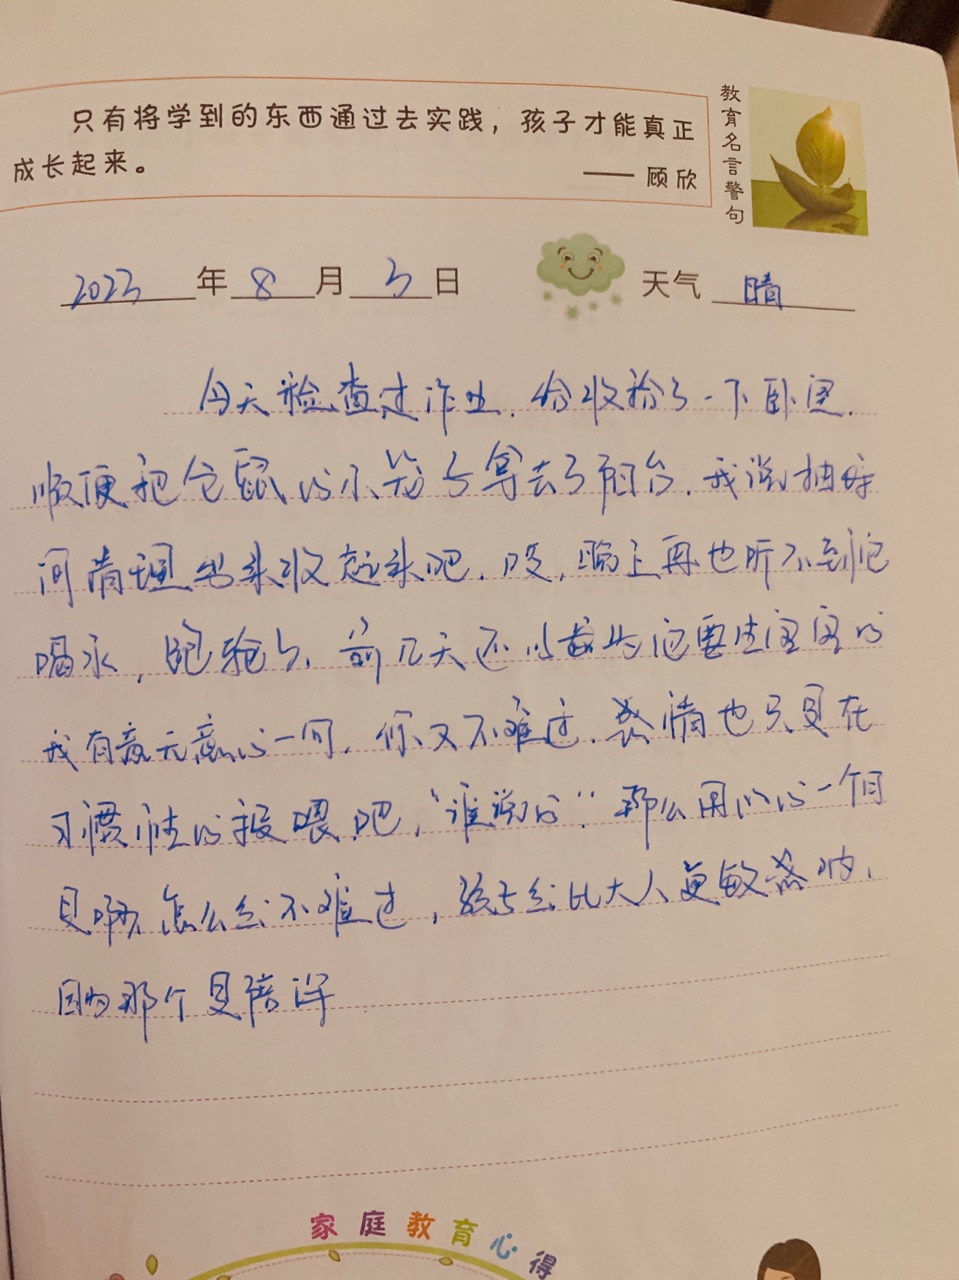 只有将学到的东西通过去实践，孩子才能真正
成长起来。
—— 顾欣
教育名言警句
2023年8月3日 天气 晴
今天检查过作业，给收拾了一下卧室，
顺便把仓鼠的小笼子拿去了阳台，我说抽时
间清理出来收起来吧，哎，晚上再也听不到它
喝水，跑轮了，前几天还
我有意无意的一问，你又不难过，感情也只是在
习惯性的投喂吧，“谁说的”，那么用心的一个月
是啊怎么会不难过，孩子会比大人更敏感哟，
因为那个是陪伴
家庭教育心得